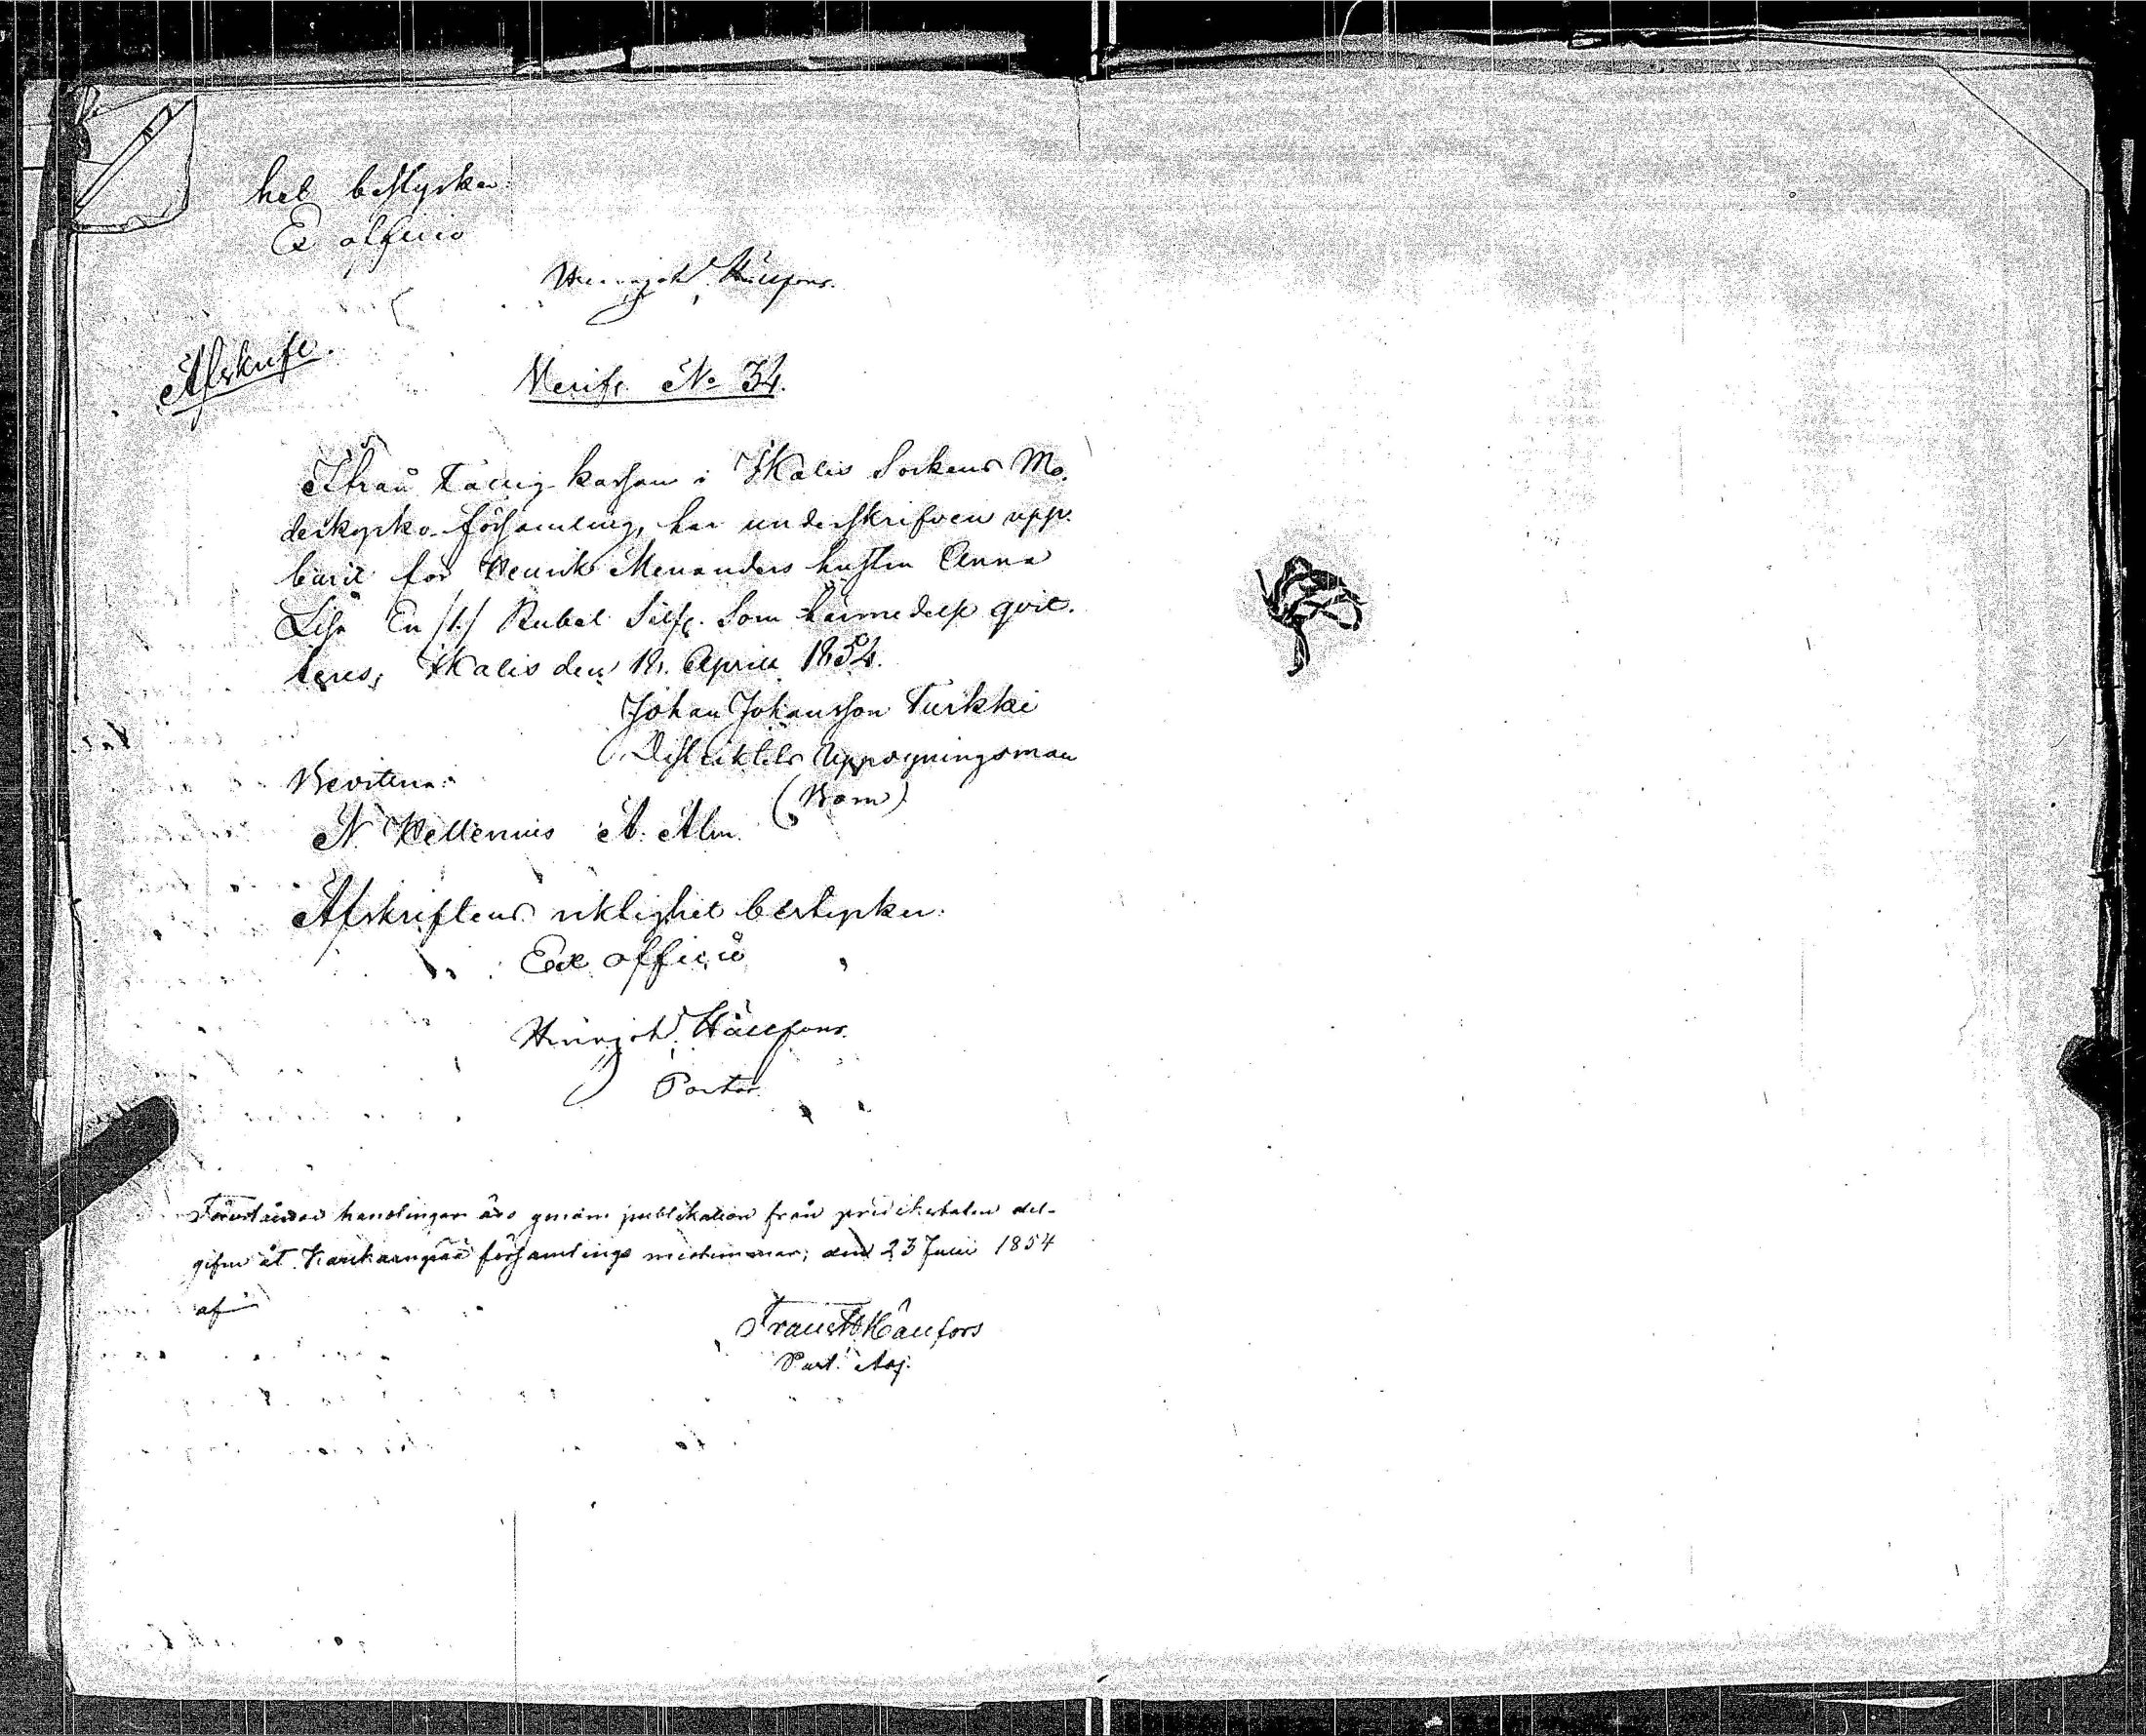 het bestyrker:
Ex officio
Henrjoh: Hällfors.
Afskrift.
Verif. No 34.
Ifrån Fattig kassan i Ikalis Sockens Mo-
derkyrko församling, har underskrifven upp-
burit för Henrik Menanders hustru Anna
Lisa En /1./ Rubel Silfr. Som härmedelst qvit-
teres; Ikalis den 18. April 1854.
Johan Johansson Turkki
Distriktets Uppsyningsman
(Bom)
Bevittna:
N. Hellenius A. Alm.
Afskriftens riktighet bestyrker:
Ex officio
Henrjoh: Hällfors.
Pastor.
Förestående handlingar äro genom publikation från predikstolen del-
gifne åt Kankaanpää församlings medlemmar; den 23 Juli 1854
af
Hällfors
Past. Adj.